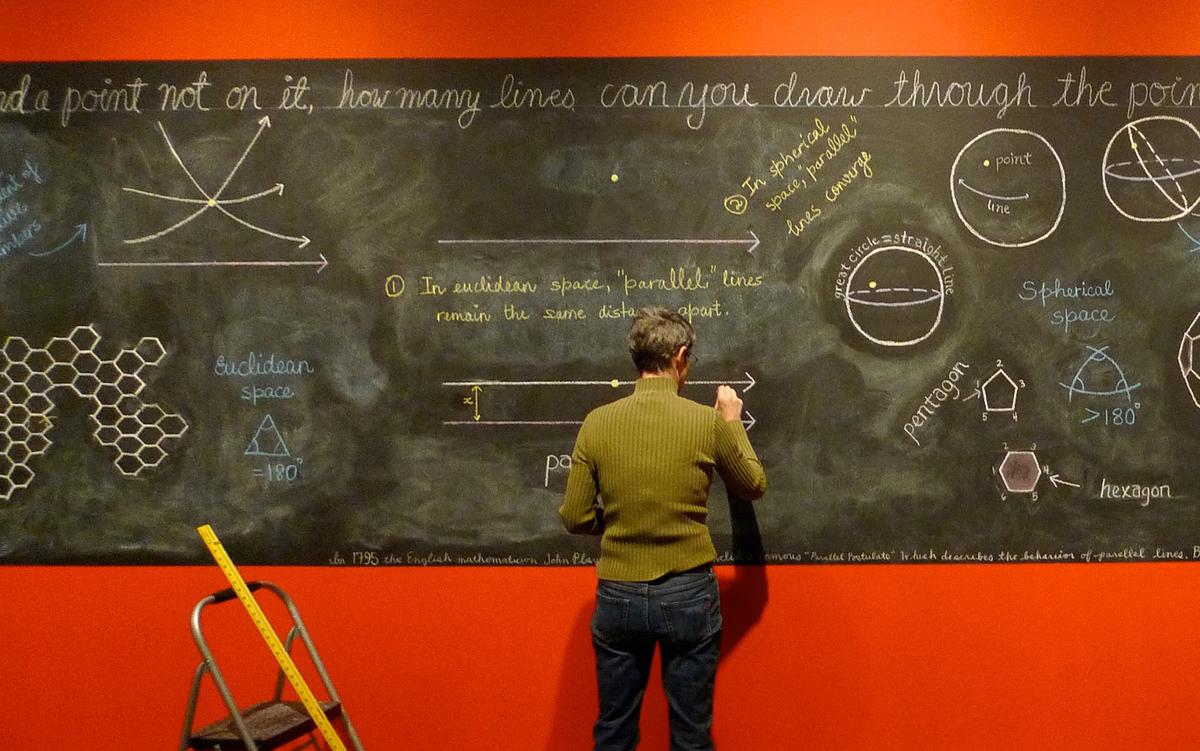 nd a point not on it, how many lines can you draw through the poin
② In spherical
space, "parallel"
lines converge
point
line
great circle = straight line
① In euclidean space, "parallel" lines
remain the same dista apart.
Spherical
space
>180°
Euclidean
space
=180°
x
pa
pentagon
1 2 3 4 5
hexagon
In 1795 the English mathematician John Play famous "Parallel Postulate" which describes the behavior of parallel lines. B